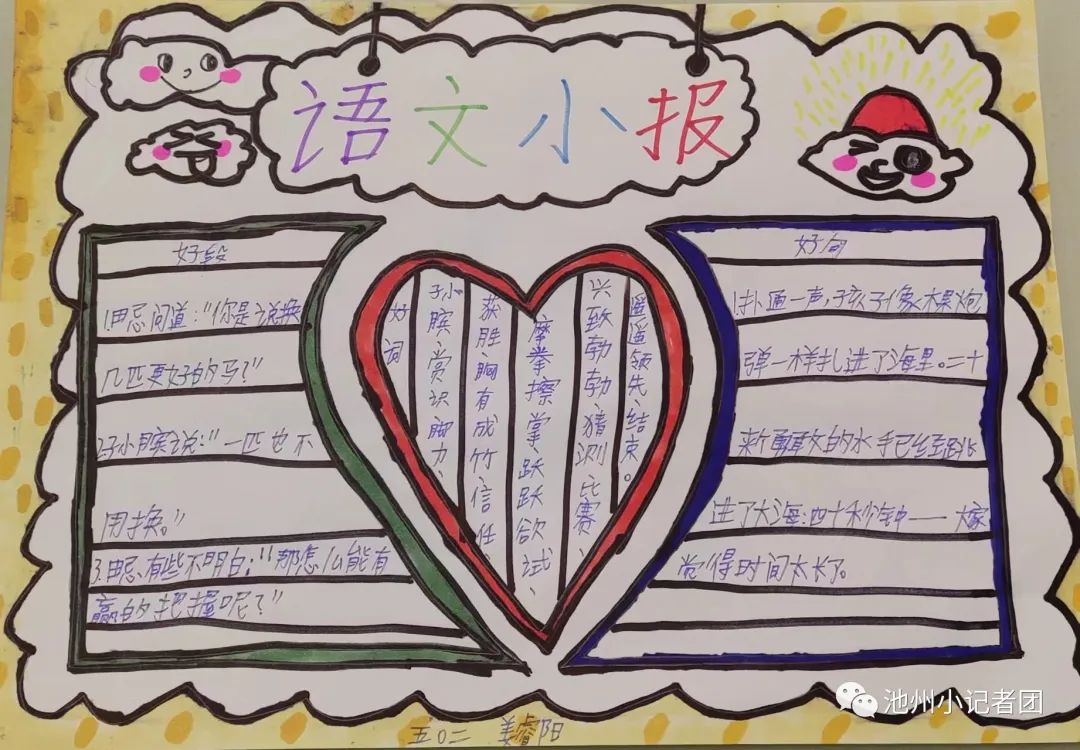 语文小报
好段
1.田忌问道:“你是说换
几匹更好的马?”
2.孙膑说:“一匹也不
用换。”
3.田忌有些不明白:“那怎么能有
赢的把握呢?”
好词
孙膑、赏识脚力、
获胜、胸有成竹、信任
摩拳擦掌、跃跃欲试、
兴致勃勃、猜测、比赛、
遥遥领先、结束。
好句
1.扑通一声,孩子像木果炮
弹一样扎进了海里。二十
来个勇敢的水手已经跳
进了大海:四十秒钟——大家
觉得时间太长了。
五〇二 姜睿阳
池州小记者团